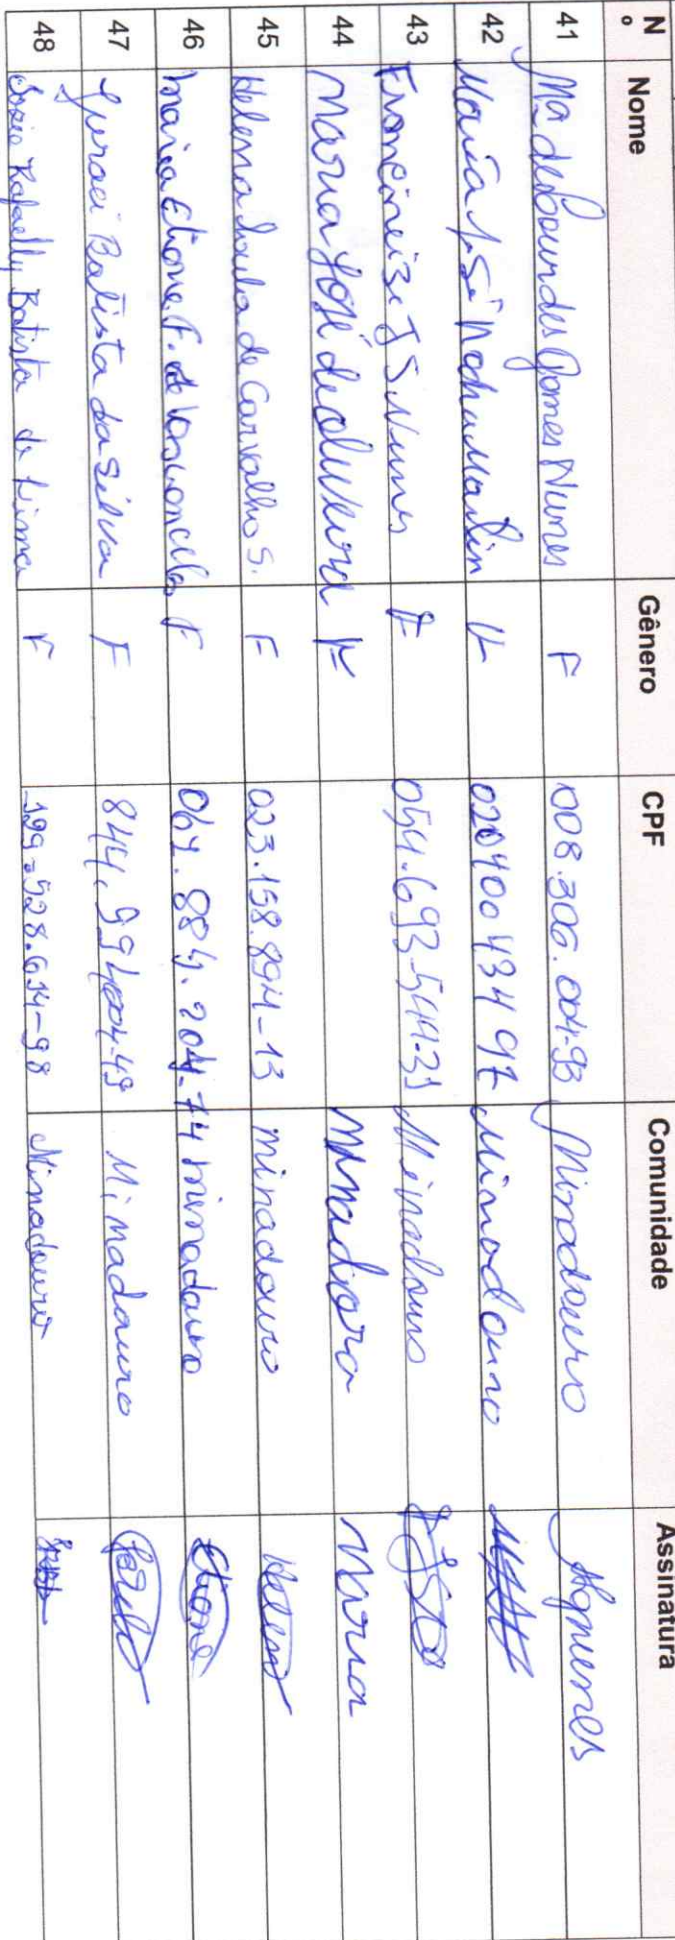 Nº Nome Gênero CPF Comunidade Assinatura
41 Ma de Lourdes Gomes Nunes F 008.306.004-93 Minadouro
42 Maria José F 02040043497 Minadouro
43 J S Nunes F 054.693.544-31 Minadouro
44 Maria José de oliveira F Minadoro Maria
45 Helena Paula de Carvalho S. F 023.158.894-13 minadouro Helena
46 maria Etione F. de Vasconcelos F 067.884.204-74 minadouro Etione
47 Juraci Batista da Silva F 844.994004-49 Minadouro
48 Rafaelly Batista de Lima F 199.528.634-98 Minadouro